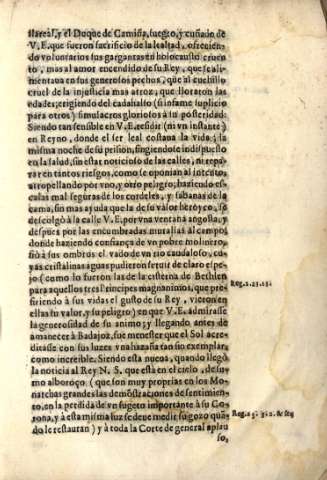 llareal, y el Duque de Camiña, suegro, y cuñado de
V. E. que fueron sacrificio de la lealtad, ofrecien-
do voluntarios sus gargantas en holocausto cruen-
to, mas al amor encendido de su Rey, que se ali-
mentava en sus generosos pechos, que al cuchillo
cruel de la injusticia mas atroz, que lloraron las
edades; erigiendo del cadahalso (si infame suplicio
para otros) simulacros gloriosos à su posteridad.
Siendo tan sensible en V. E. residir (ni vn instante)
en Reyno, donde el ser leal costava la vida; la
misma noche de su prision, fingiendose indispuesto
en la salud, sin estar noticioso de las calles, ni repa-
rar en tantos riesgos, como se oponian al intento,
atropellando por vno, y otro peligro; haziendo es-
calas mal seguras de los cordeles, y sabanas de la
cama, sin mas ayuda que la de su valor heroyco, se
descolgò à la calle V. E. por vna ventana angosta, y
despues por las encumbradas murallas al campo,
donde haziendo confiança de vn pobre molinero,
fiò à sus ombros el vado de vn rio caudaloso, cu-
yas cristalinas aguas pudieron servir de claro espe-
jo (como lo fueron las de la cisterna de Bethlen
para aquellos tres Principes magnanimos, que pre-
firiendo à sus vidas el gusto de su Rey, vieron en
ellas su valor, y su peligro) en que V. E. admirasse
la generosidad de su animo; y llegando antes de
amanecer à Badajoz, fue menester que el Sol acre-
ditasse con sus luzes vna hazaña tan sin exemplar,
como increible. Siendo esta nueva, quando llegò
la noticia al Rey N. S. que està en el cielo, de su-
mo alboroço (que son muy proprias en los Mo-
narchas grandes las demostraciones de sentimien-
to, en la perdida de vn sugeto importante à su Co-
rona, y à esta misma luz se deve medir su gozo quan-
do le restauran) y à toda la Corte de general aplau
so,
Reg. 2. 23. 15.
Reg. 2